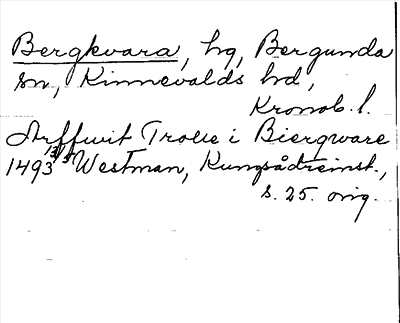 Bergkvara, hg, Bergunda
sn, Kinnevalds hd,
Kronob. l.
Arffwit Trolle i Biergware
1493 13/5 Westman, Kungsådreinst.,
s. 25. orig.